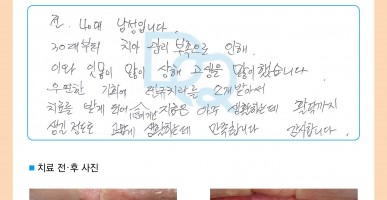 전. 40대 남성입니다.
30대부터 치아 관리 부족으로 인해.
이와 잇몸이 많이 상해 고생을 많이했습니다
우연한 기회에 를 소개받아서
치료를 받게 되어 지금은 아주 생활하는데
정도로 생활하는데 만족합니다 감사합니다.
■ 치료 전·후 사진